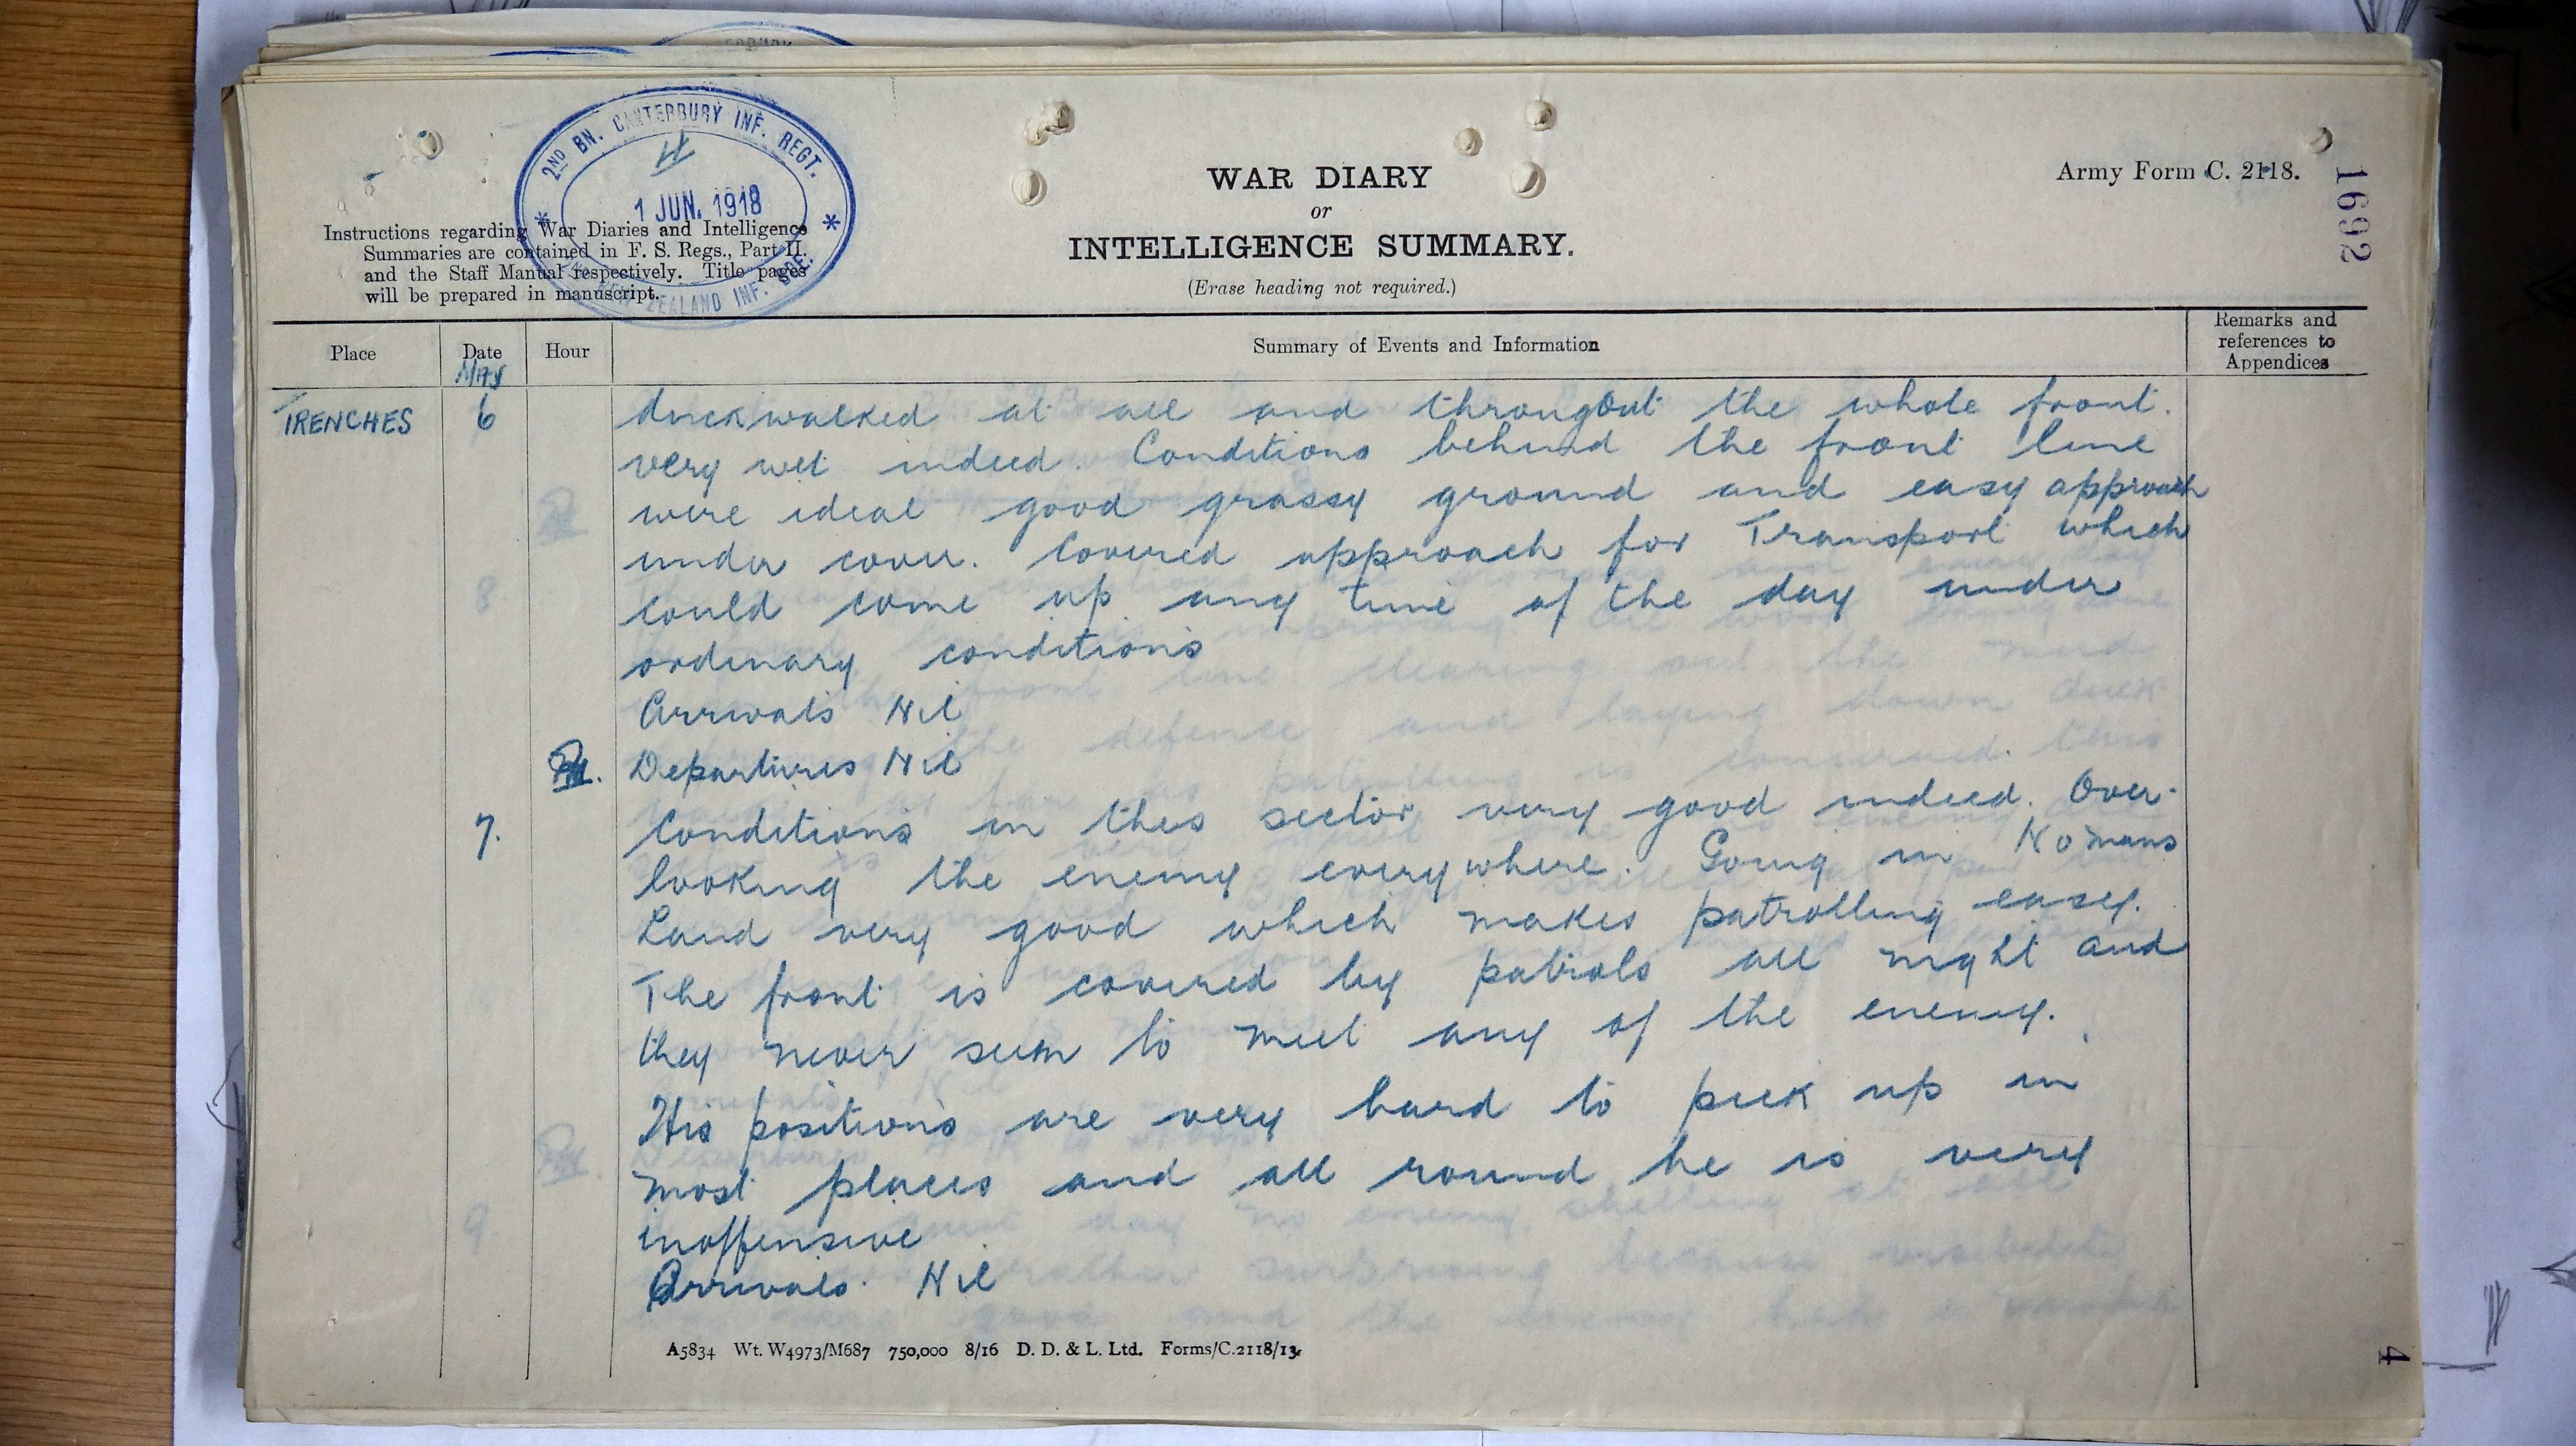 2ND BN. CANTERBURY INF. REGT.
1 JUN. 1918
NEW ZEALAND INF. BDE.
Instructions regarding War Diaries and Intelligence
Summaries are contained in F. S. Regs., Part II.
and the Staff Manual respectively. Title pages
will be prepared in manuscript.
WAR DIARY
or
INTELLIGENCE SUMMARY.
(Erase heading not required.)
Army Form C. 2118.
1692
Place
Date
Hour
Summary of Events and Information
Remarks and
references to
Appendices
MAY
TRENCHES 6 duckwalked at all and througout the whole front.
very wet indeed. Conditions behind the front line
were ideal good grassy ground and easy approach
under cover. Covered approach for Transport which
could come up any time of the day under
ordinary conditions
Arrivals Nil
Departures Nil
7. Conditions in this sector very good indeed. Over-
looking the enemy everywhere. Going in No mans
Land very good which makes patrolling easy.
The front is covered by patrols all night and
they never seem to meet any of the enemy.
His positions are very hard to pick up in
most places and all round he is very
inoffensive
Arrivals. Nil
A5834 Wt. W4973/M687 750,000 8/16 D. D. & L. Ltd. Forms/C.2118/13.
4